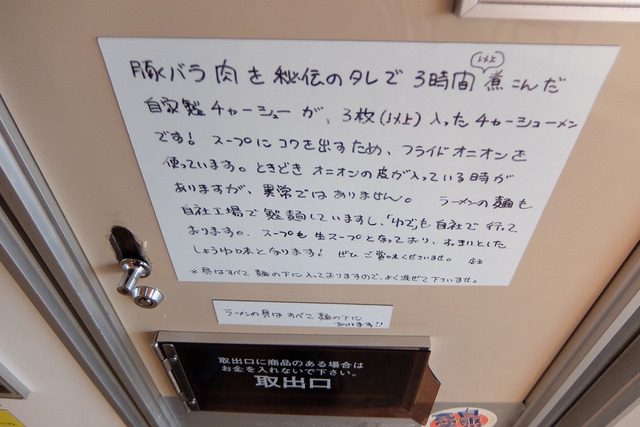 豚バラ肉を秘伝のタレで3時間以上煮こんだ
自家製チャーシューが、3枚(以上)入ったチャーシューメン
です! スープにコクを出すため、フライドオニオンを
使っています。ときどきオニオンの皮が入っている時が
ありますが、異常ではありません。 ラーメンの麺も
自社工場で製麺していますし、「ゆで」も自社で行って
おります。スープも生スープとなっており、あっさりとした
しょうゆ味となります! ぜひご賞味くださいませ。 店主
※具はすべて麺の下に入っておりますので、よく混ぜて下さいませ。
ラーメンの具はすべて麺の下に
あります!!
取出口に商品のある場合は
お金を入れないで下さい。
取出口